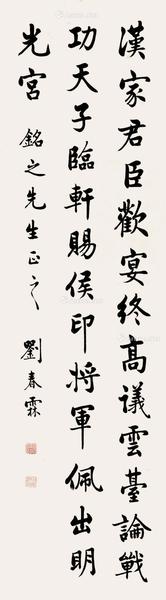 漢家君臣歡宴終高議雲臺論戰
功天子臨軒賜侯印將軍佩出明
光宮
銘之先生正之
劉春霖